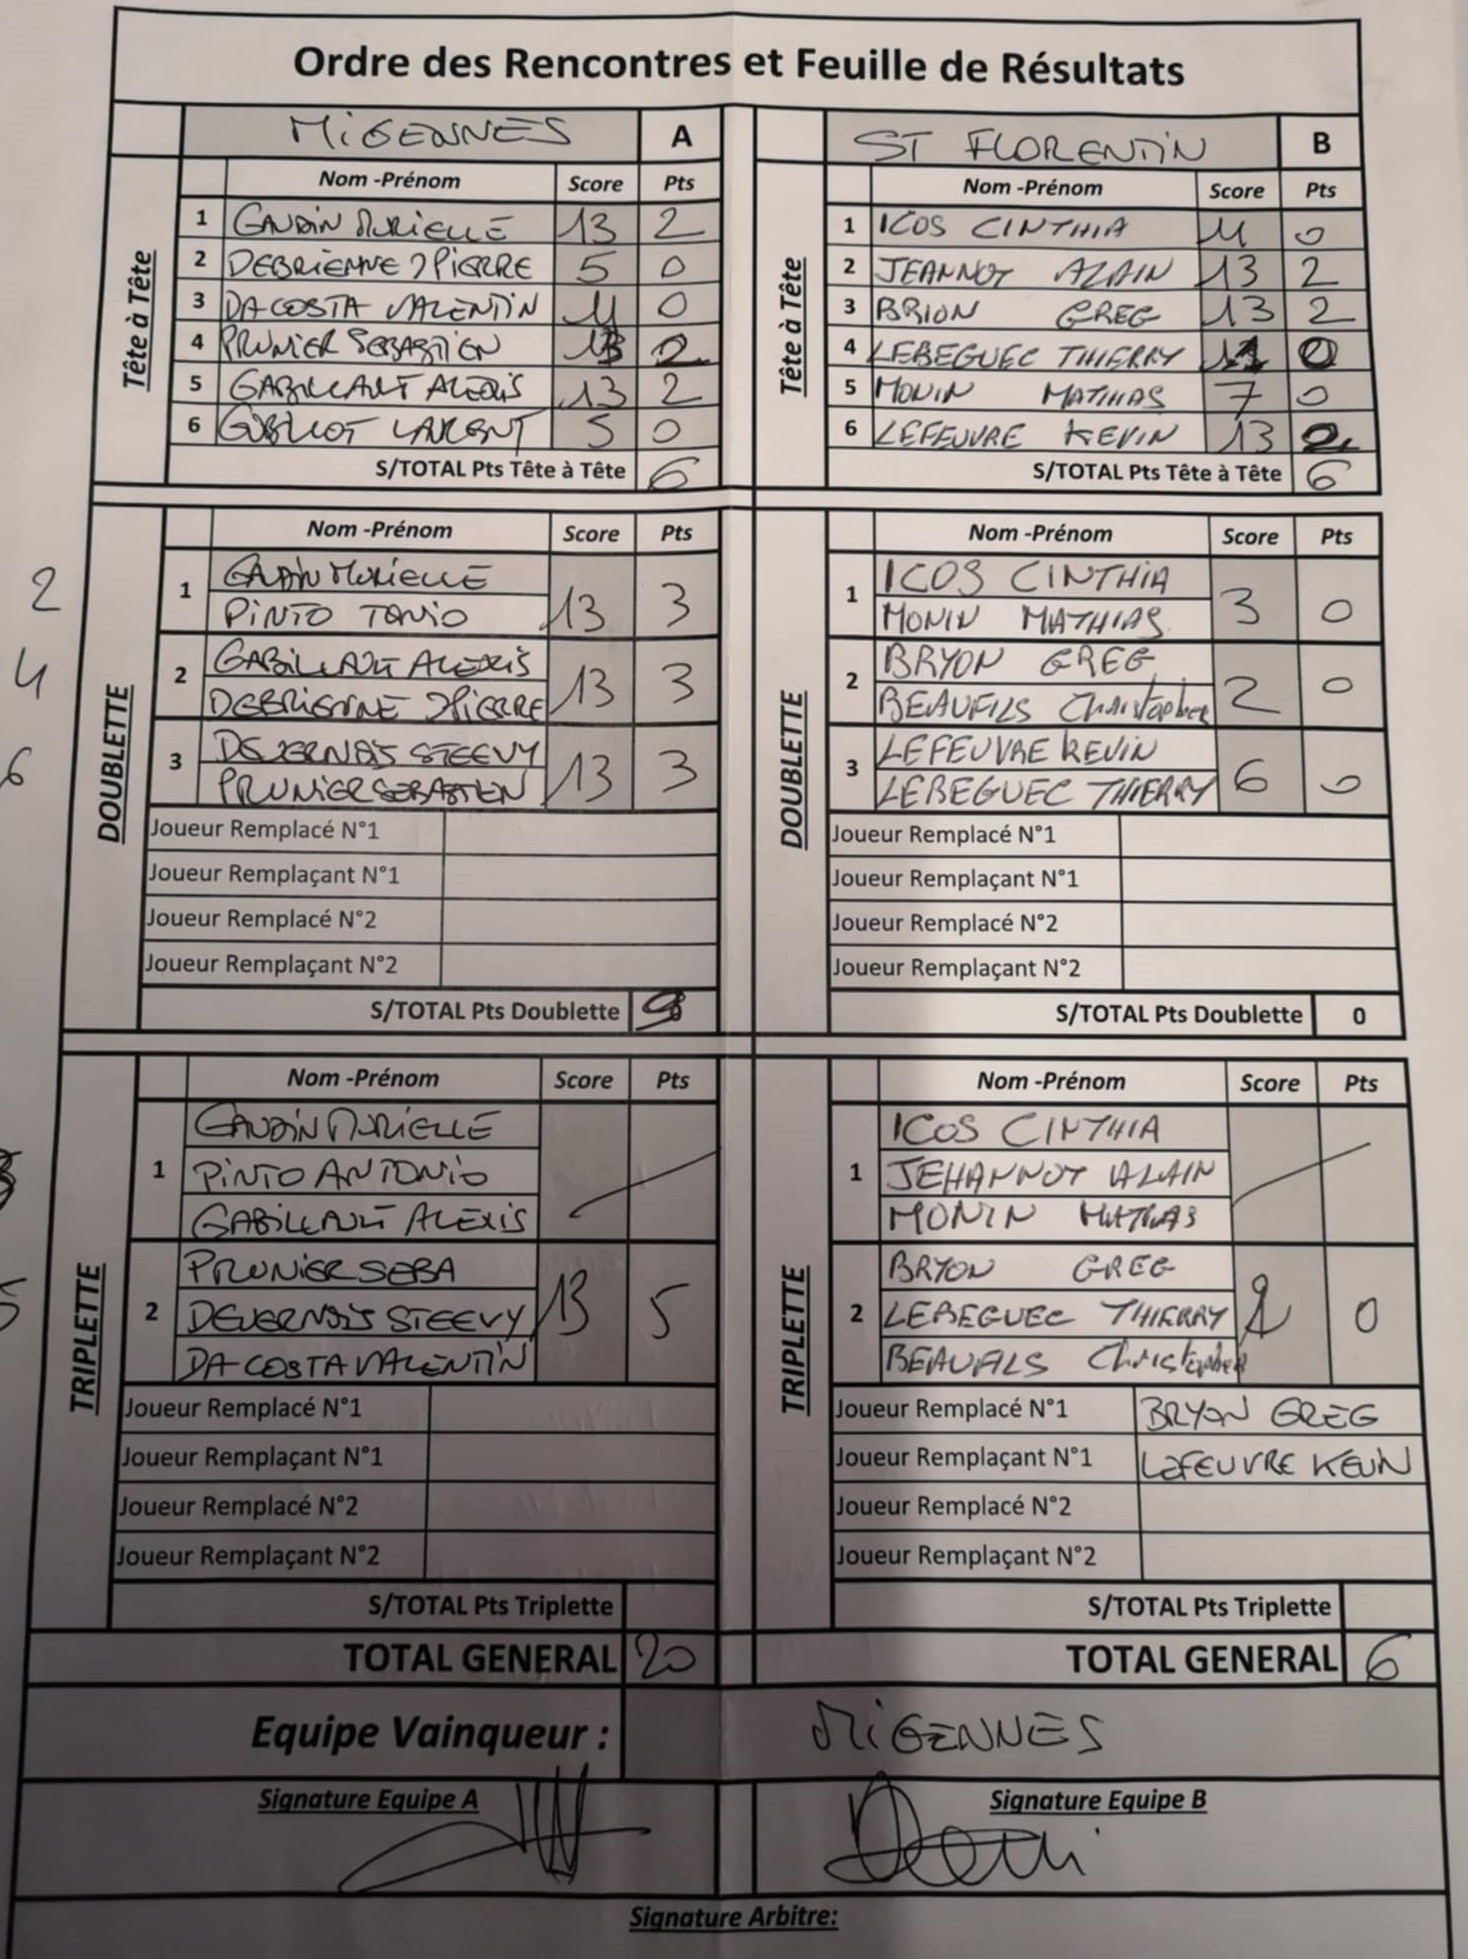 Ordre des Rencontres et Feuille de Résultats
MIGENNES A
Tête à Tête
Nom -Prénom Score Pts
1 GAUDIN MURIELLE 13 2
2 DEBRIENNE JPIERRE 5 0
3 DA COSTA VALENTIN 11 0
4 PRUNIER SEBASTIEN 13 2
5 GABILLAULT ALEXIS 13 2
6 LAURENT 5 0
S/TOTAL Pts Tête à Tête 6
ST FLORENTIN B
Tête à Tête
Nom -Prénom Score Pts
1 ICOS CINTHIA 11 0
2 JEANNOT ALAIN 13 2
3 BRION GREG 13 2
4 LEBEGUEC THIERRY 0
5 MONIN MATHIAS 7 0
6 LEFEUVRE KEVIN 13 2
S/TOTAL Pts Tête à Tête 6
2
4
6
DOUBLETTE
Nom -Prénom Score Pts
1 GAUDIN MURIELLE
PINTO TONIO 13 3
2 GABILLAULT ALEXIS
DEBRIENNE JPIERRE 13 3
3 DEVERNOIS STEEVY
PRUNIER SEBASTIEN 13 3
Joueur Remplacé N°1
Joueur Remplaçant N°1
Joueur Remplacé N°2
Joueur Remplaçant N°2
S/TOTAL Pts Doublette 9
DOUBLETTE
Nom -Prénom Score Pts
1 ICOS CINTHIA
MONIN MATHIAS 3 0
2 BRYON GREG
BEAUFILS Christopher 2 0
3 LEFEUVRE KEVIN
LEBEGUEC THIERRY 6 0
Joueur Remplacé N°1
Joueur Remplaçant N°1
Joueur Remplacé N°2
Joueur Remplaçant N°2
S/TOTAL Pts Doublette 0
TRIPLETTE
Nom -Prénom Score Pts
1 GAUDIN MURIELLE
PINTO ANTONIO
GABILLAULT ALEXIS
2 PRUNIER SEBA
DEVERNOIS STEEVY 13 5
DA COSTA VALENTIN
Joueur Remplacé N°1
Joueur Remplaçant N°1
Joueur Remplacé N°2
Joueur Remplaçant N°2
S/TOTAL Pts Triplette
TOTAL GENERAL 20
TRIPLETTE
Nom -Prénom Score Pts
1 ICOS CINTHIA
JEHANNOT ALAIN
MONIN MATHIAS
2 BRYON GREG
LEBEGUEC THIERRY 0
BEAUFILS Christopher
Joueur Remplacé N°1 BRYON GREG
Joueur Remplaçant N°1 LEFEUVRE KEVIN
Joueur Remplacé N°2
Joueur Remplaçant N°2
S/TOTAL Pts Triplette
TOTAL GENERAL 6
Equipe Vainqueur : MIGENNES
Signature Equipe A
Signature Equipe B
Signature Arbitre: